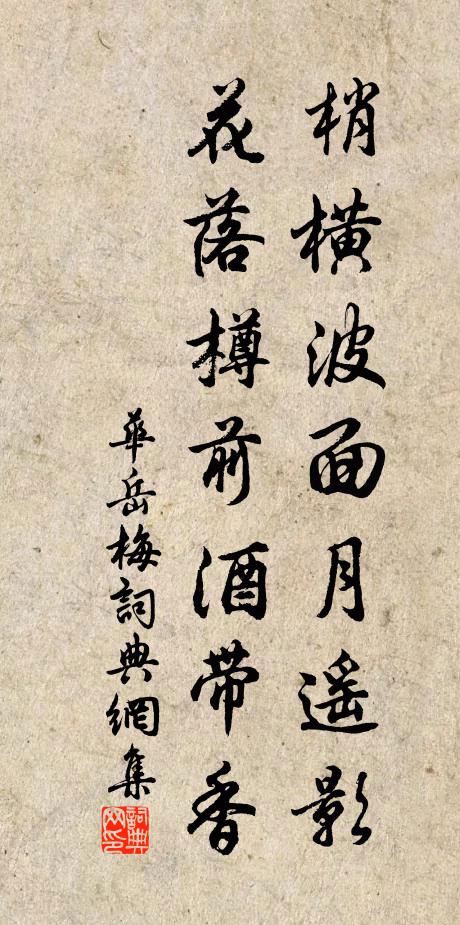 梢横波面月遥影
花落樽前酒带香
華岳梅詞典網集
詞典网印